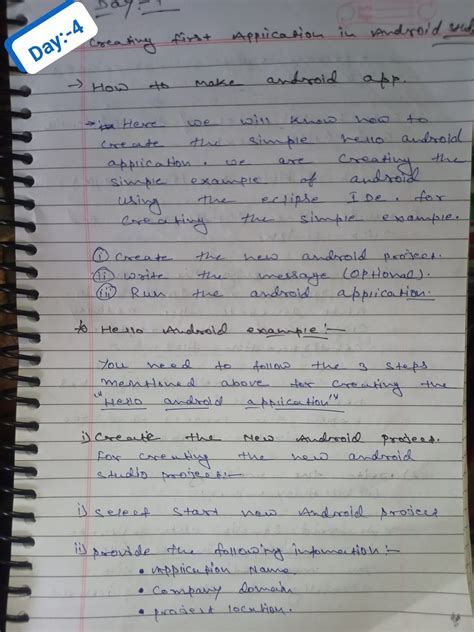 Day - 4
Day:-4
Creating first Application in Android
→ How to make android app.
→ Here we will know how to
create the simple hello android
application. we are creating the
simple example of android
using the eclipse IDe. for
creating the simple example.
(i) Create the new android project.
(ii) write the message (OPtional).
(iii) Run the android application.
Hello Android example:-
You need to follow the 3 steps
mentioned above for creating the
"Hello android application"
i) Create the New Android project.
For creating the new android
studio project:-
i) select start new Android project
ii) provide the following information:-
• Application Name
• Company domain
• project location.